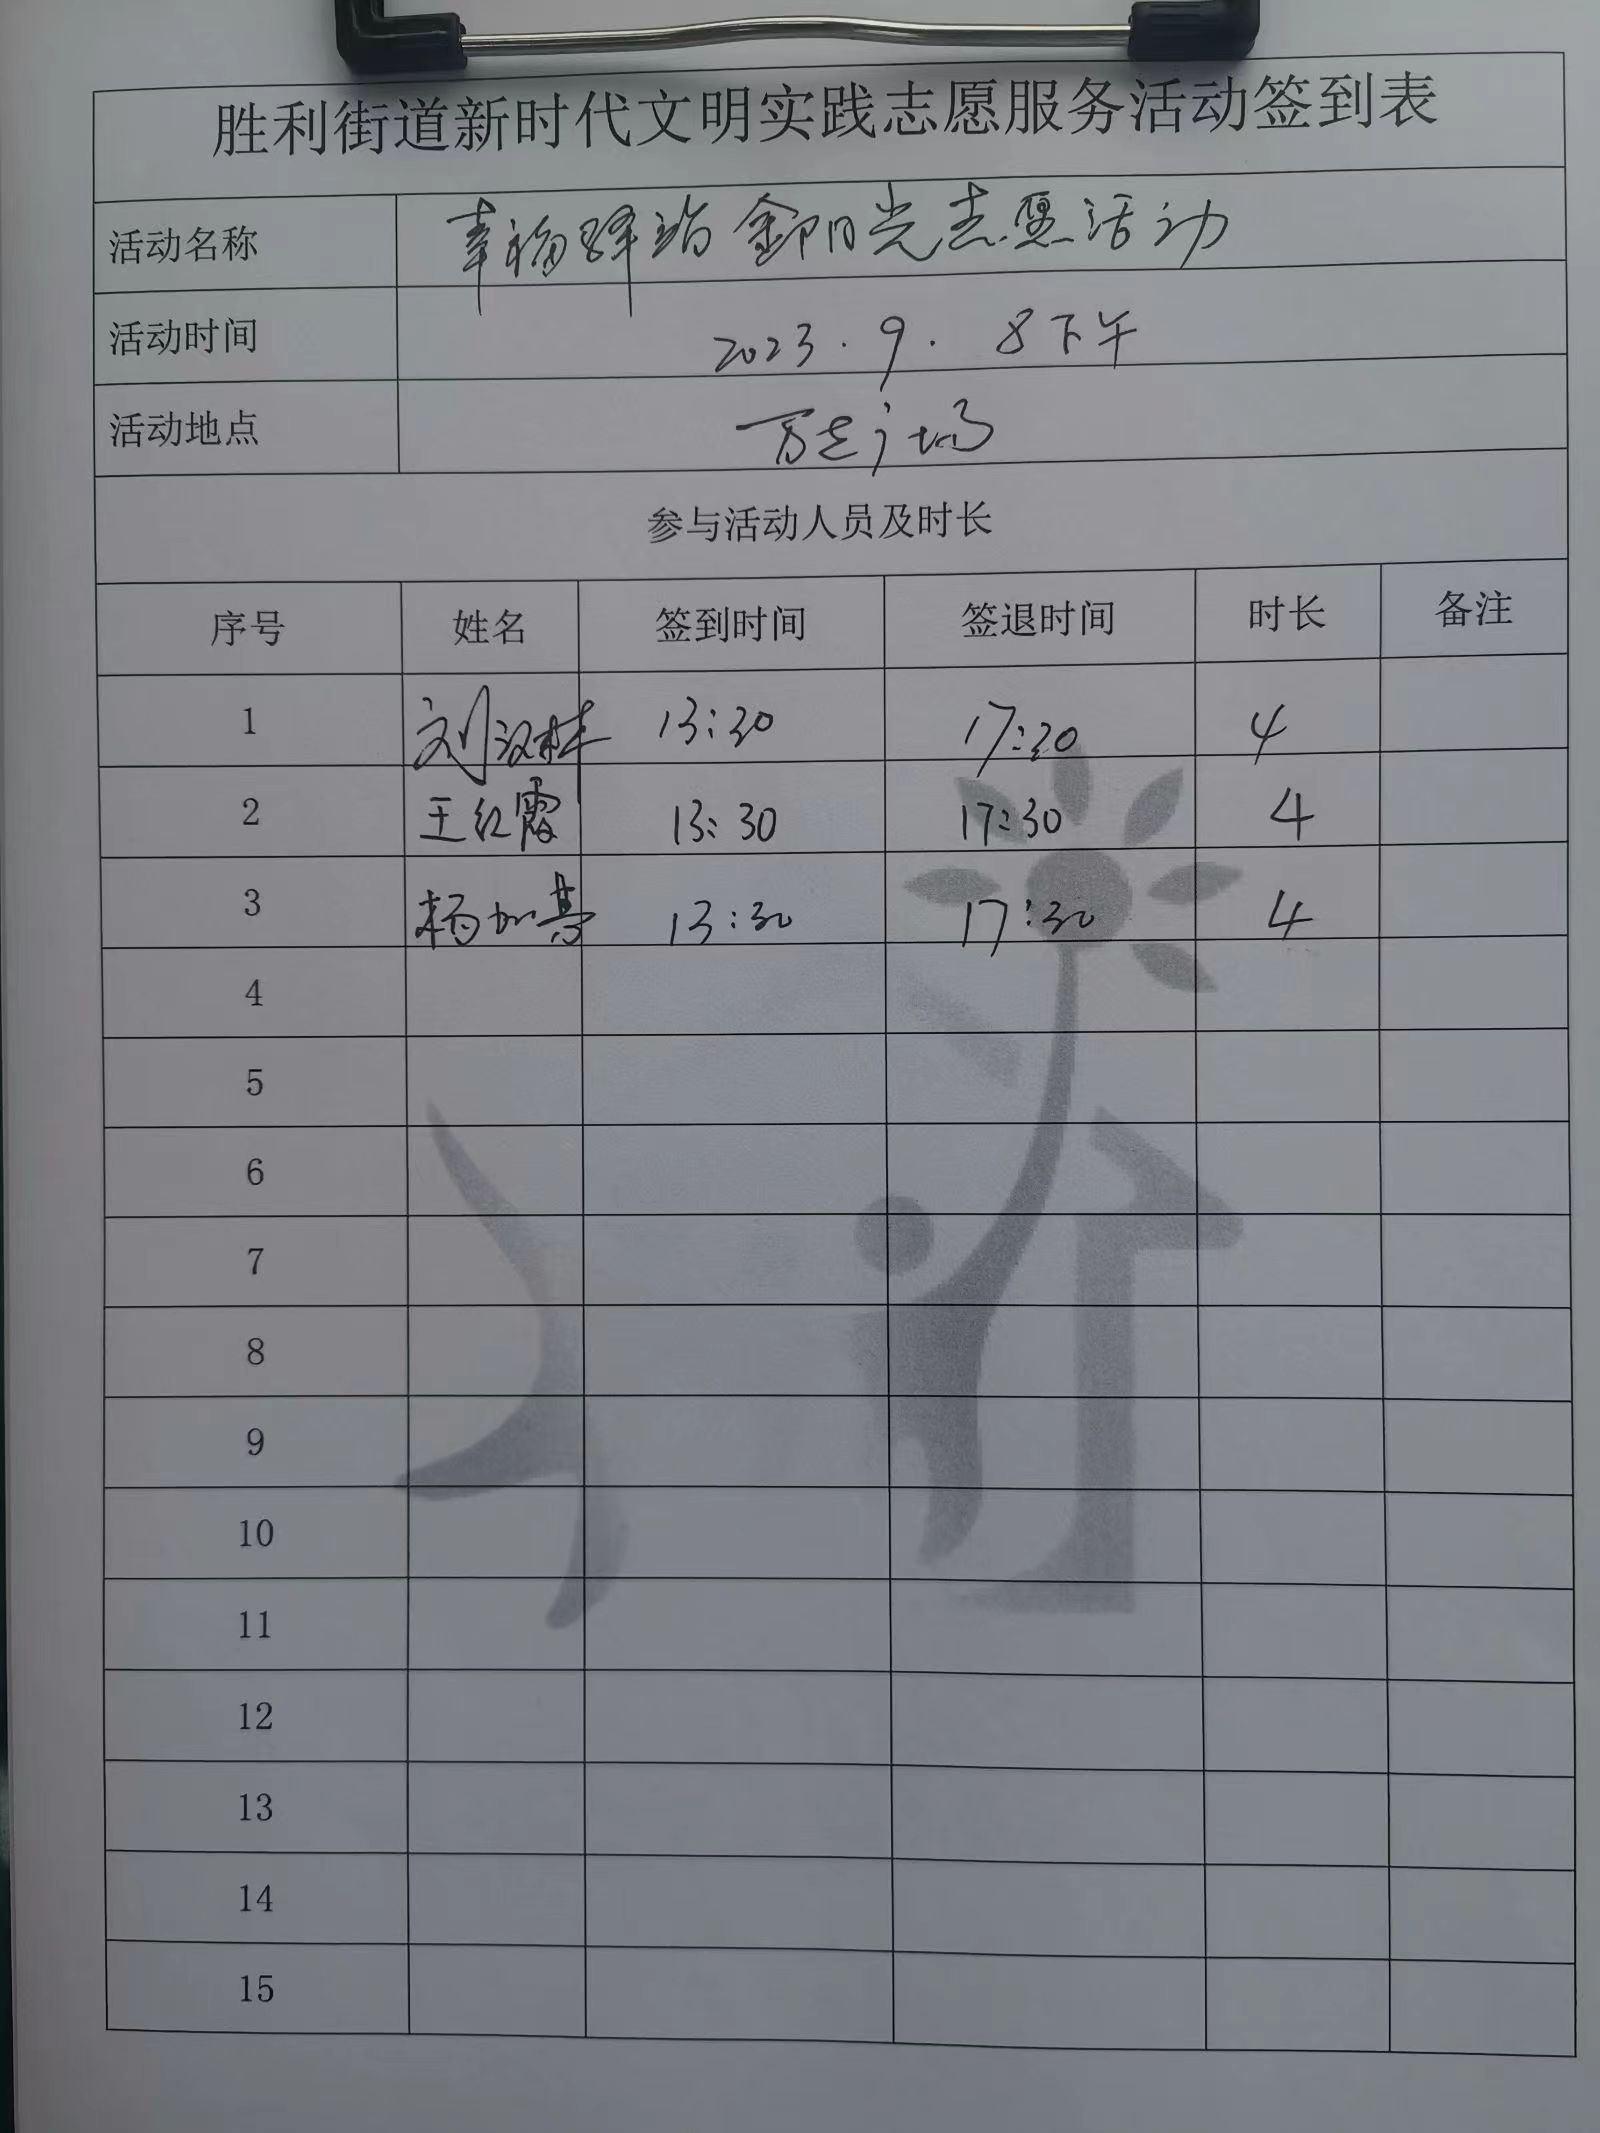 胜利街道新时代文明实践志愿服务活动签到表
活动名称 幸福驿站 金阳光志愿活动
活动时间 2023.9.8下午
活动地点 万达广场
参与活动人员及时长
序号 姓名 签到时间 签退时间 时长 备注
1 刘汉林 13:30 17:30 4
2 王红霞 13:30 17:30 4
3 杨加 13:30 17:30 4
4
5
6
7
8
9
10
11
12
13
14
15